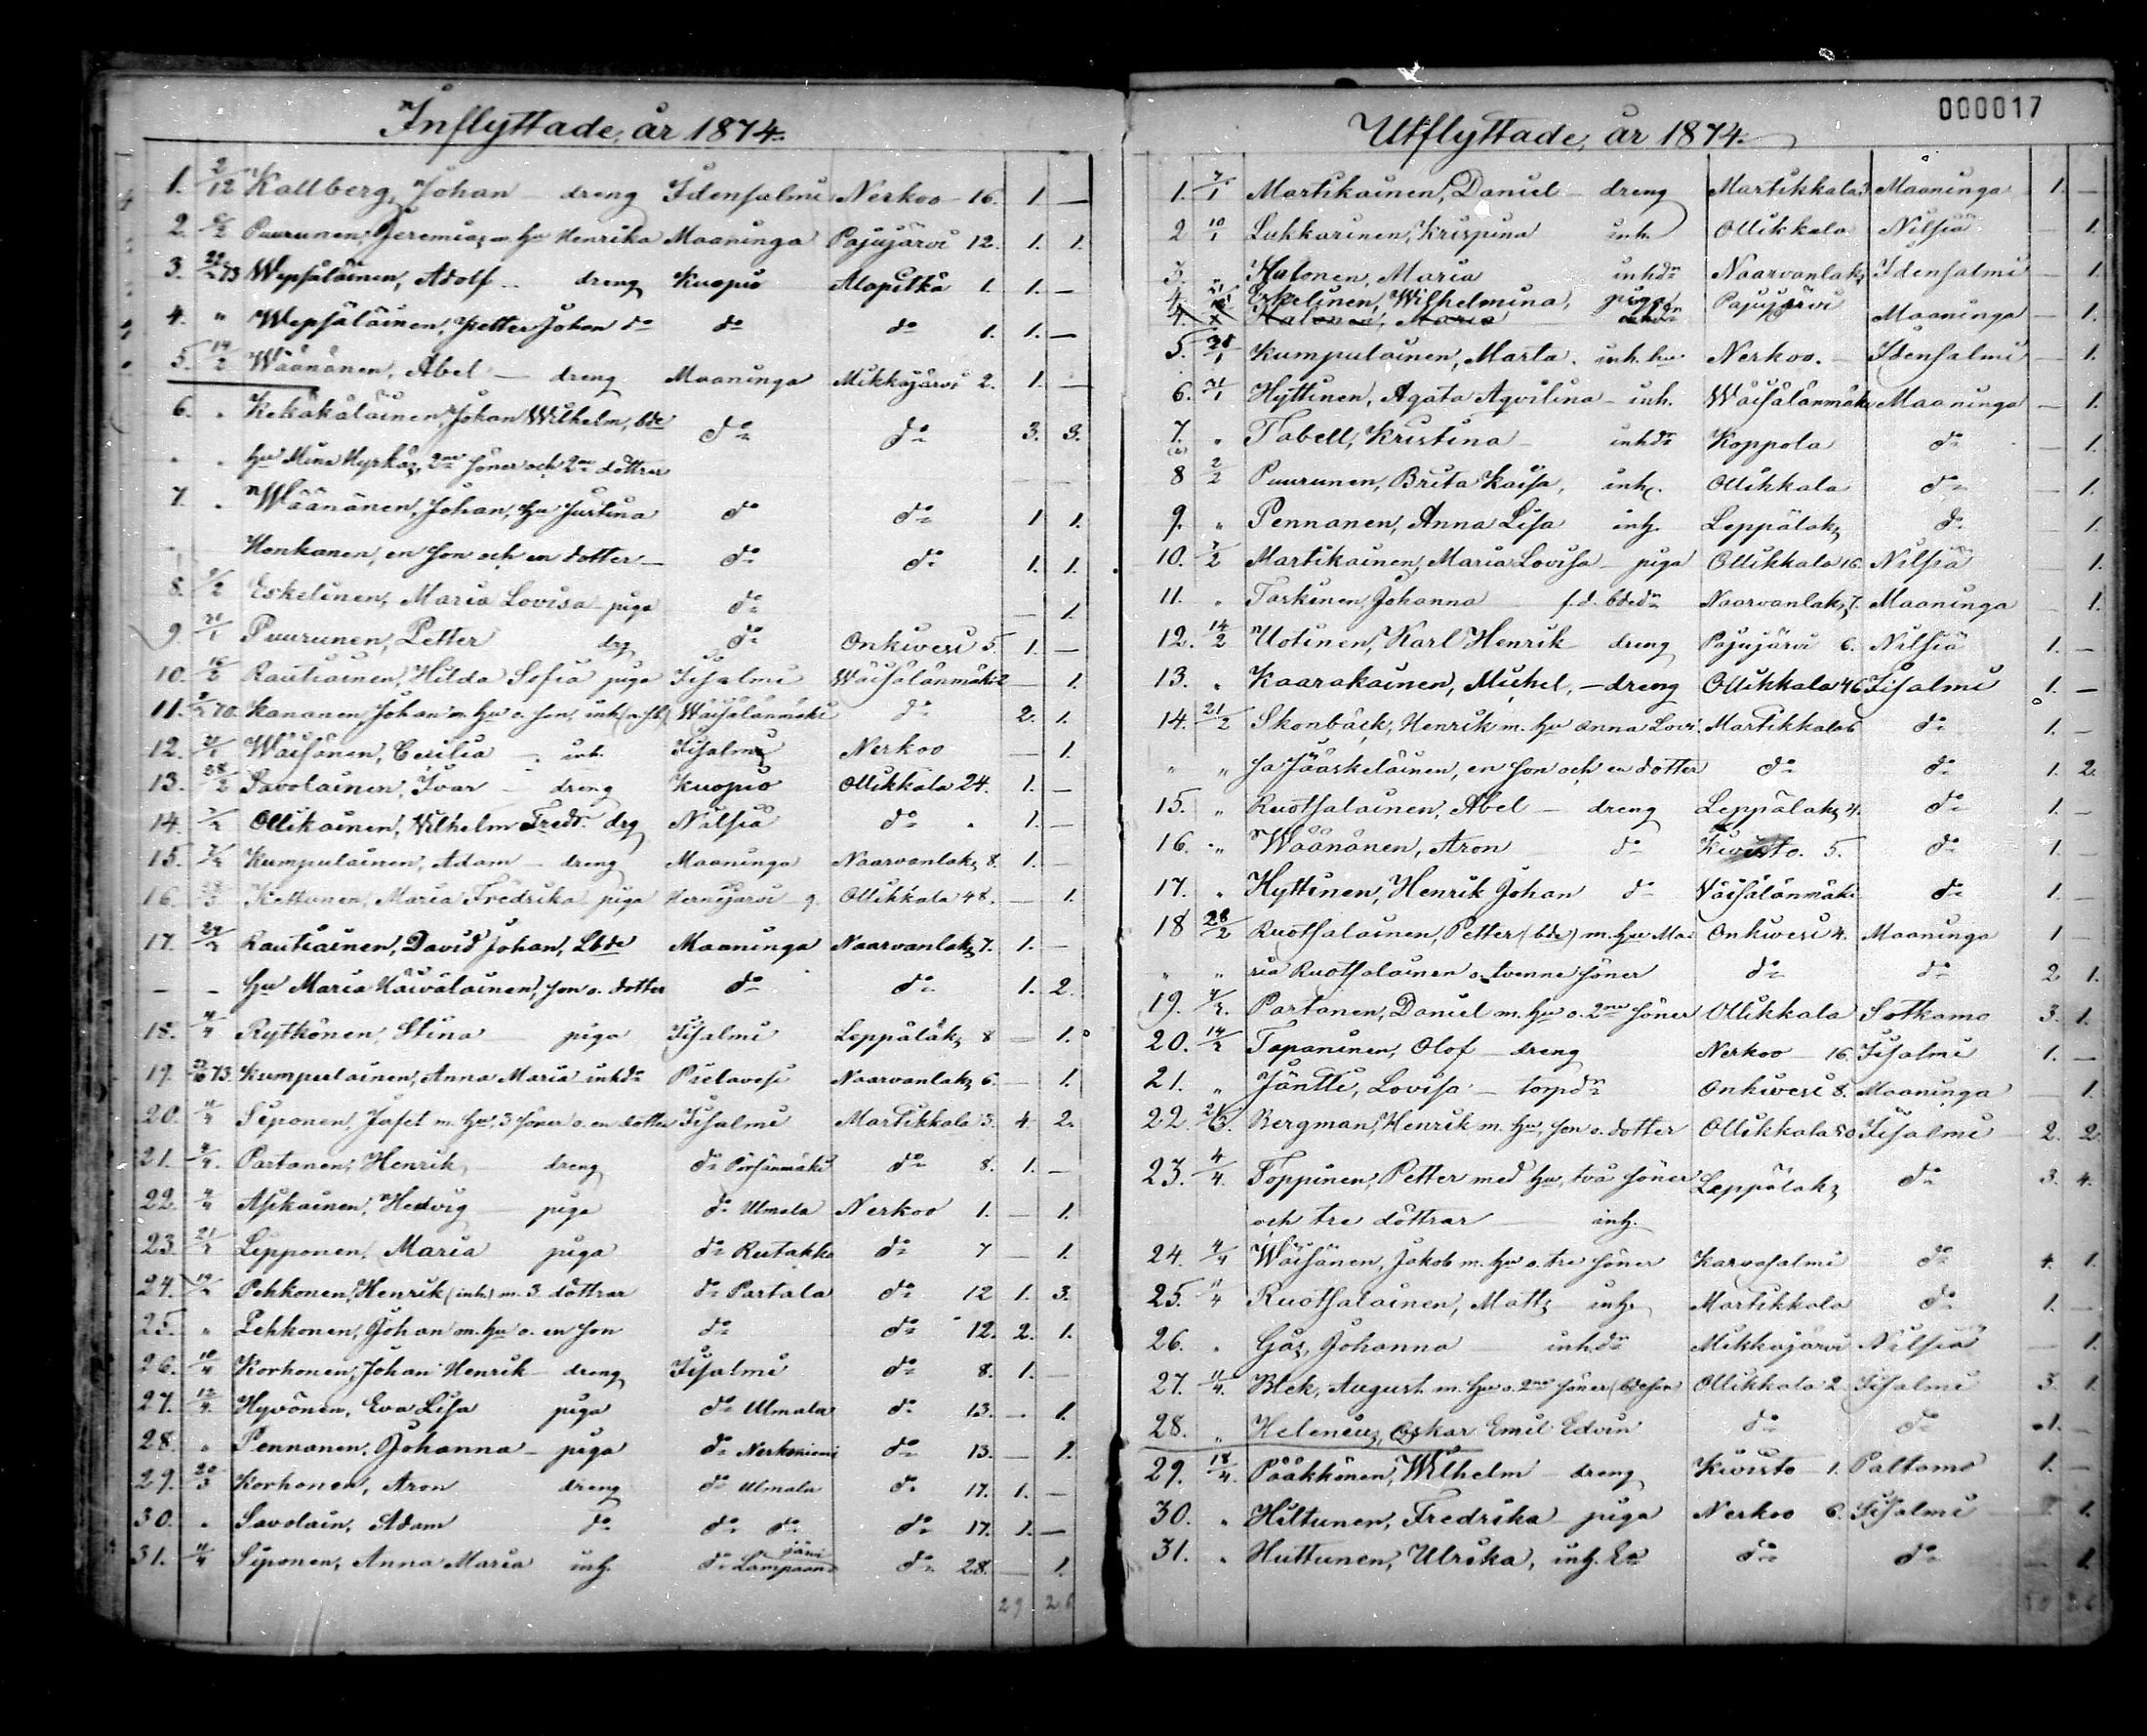 Inflyttade, år 1874.
1. 2/12 Kallberg, Johan - dreng Idensalmi Nerkoo 16. 1. —
2. Puurunen, Jeremias m. hu Henrika Maaninga Pajujärvi 12. 1. 1.
3. Wepsäläinen, Adolf dreng Kuopio Alapitkä 1. 1. —
4. " Wepsäläinen, Petter Johan do do do 1. 1. —
5. 14/2 Wäänänen, Abel — dreng Maaninga Mikkajärvi 2. 1. —
6. " Kekäkäläinen, Johan Wilhelm, bde do do 3. 3.
" " hu Mina Hyrkäs, 2ne söner och 2ne döttrar
7. " Wäänänen, Johan, hu Justina do do 1 1.
Honkanen, en son och en dotter — do do 1. 1.
8. Eskelinen, Maria Lovisa piga do — 1.
9. 21/1 Puurunen, Petter drg do Onkivesi 5. 1. —
10. 16/2 Rautiainen, Hilda Sofia piga Iisalmi Wäisälänmäki 2 — 1.
11. Kananen, Johan m. hu o. son, inh. Wäisälänmäki do 2. 1.
12. 21/1 Wäisänen, Cecilia inh. Iisalmi Nerkoo — 1.
13. 28/2 Savolainen, Ivar — dreng Kuopio Ollikkala 24. 1. —
14. Ollikainen, Wilhelm Fredr. drg Nilsiä do 1. —
15. Kumpulainen, Adam — dreng Maaninga Naarvanlaks 8. 1. —
16. Kettunen, Maria Fredrika piga Nernejärvi 9. Ollikkala 48. — 1.
17. Rautiainen, David Johan, Lbde Maaninga Naarvanlaks 7. 1. —
— — hu Maria Häiväläinen, son o. dotter do do 1. 2.
18. 4/4 Rytkönen, Stina piga Iisalmi Leppälaks 8 — 1.
19. Kumpulainen, Anna Maria inhdr Pielavesi Naarvanlaks 6. — 1.
20. Siponen, Jafet m. hu, 3 söner o. en dotter Iisalmi Martikkala 3. 4. 2.
21. Partanen, Henrik, dreng do Pörsänmäki do 8. 1. —
22. 4/4 Asikainen, Hedvig piga do Ulmala Nerkoo 1. — 1.
23. Lepponen, Maria piga do Rutakko do 7 — 1.
24. Pehkonen, Henrik (inh.) m. 3 döttrar do Partala do 12 1. 3.
25. " Pehkonen, Johan m. hu o. en son do do 12. 2. 1.
26. Korhonen, Johan Henrik dreng Iisalmi do 8. 1. —
27. Hyvönen, Eva Lisa piga do Ulmala do 13. — 1.
28. " Pennanen, Johanna — piga do Nerkoniemi do 13. — 1.
29. 20/3 Korhonen, Aron dreng do Ulmala do 17. 1. —
30. " Savolain, Adam do do do do 17. 1. —
31. 11/4 Siponen, Anna Maria inh. do Lampaanjärvi do 28. — 1.
29 26
000017
Utflyttade, år 1874.
1. 7/1 Martikainen, Daniel — dreng Martikkala 3. Maaninga 1. —
2 10/1 Lukkarinen, Krispina inh. Ollikkala Nilsiä — 1.
3. " Halonen, Maria inhdr Naarvanlaks Idensalmi — 1.
4. Eskelinen, Wilhelmina, piga Pajujärvi Maaninga — 1.
4. Halonen, Maria
5. Kumpulainen, Marta inh. hu Nerkoo. Idensalmi — 1.
6. 21/1 Hyttinen, Agata Aqvilina — inh. Wäisälänmäki Maaninga — 1.
7. " Tabell, Kristina — inhdr Koppola do — 1.
8 2/2 Puurunen, Brita Kaisa, inh. Ollikkala do — 1.
9. " Pennanen, Anna Lisa inh. Leppälaks do — 1.
10. 7/2 Martikainen, Maria Lovisa — piga Ollikkala 16. Nilsiä 1.
11. " Tarkinen, Johanna f.d. bdedr Naarvanlaks 7. Maaninga — 1.
12. 14/2 Uotinen, Karl Henrik dreng Pajujärvi 6. Nilsiä 1. —
13. " Kaarakainen, Mickel, — dreng Ollikkala 46 Iisalmi 1. —
14. 21/2 Skonbäck, Henrik m. hu Anna Lovi- Martikkala 6 do 1. —
" " sa Jääskeläinen, en son och en dotter do do 1. 2.
15. " Ruotsalainen, Abel — dreng Leppälaks 4. do 1. —
16. " Wäänänen, Aron do Kivisto. 5. do 1. —
17. " Hyttinen, Henrik Johan do Väisälänmäki do 1. —
18 28/2 Ruotsalainen, Petter (bde) m. hu Ma- Onkivesi 4. Maaninga 1 —
" " ria Ruotsalainen o. tvenne söner do do 2 1.
19. Partanen, Daniel m. hu o. 2ne söner Ollikkala Sotkamo 3. 1.
20. Tapaninen, Olof — dreng Nerkoo — 16. Iisalmi 1. —
21. " Jäntti, Lovisa — torpdr Onkivesi 8. Maaninga — 1.
22. Bergman, Henrik m. hu, son o. dotter Ollikkala 50 Iisalmi 2. 2.
23. 4/4. Toppinen, Petter med hu, två söner Leppälaks do 3. 4.
och tre döttrar — inh.
24. 4/4 Wäisänen, Jakob m. hu o. tre söner Karvasalmi do 4. 1.
25. 11/4 Ruotsalainen, Matts inh. Martikkala do 1. —
26. " Gås, Johanna — inhdr Mikkajärvi Nilsiä — 1.
27. 11/4. Blek, August m. hu o. 2ne söner (bdeson) Ollikkala 2 Iisalmi 3. 1.
28. " Heleneus, Oskar Emil Edvin do do 1. —
29. 18/4. Pääkkönen, Wilhelm — dreng Kivisto — 1. Paltamo 1. —
30. " Hiltunen, Fredrika piga Nerkoo 6. Iisalmi 1.
31. " Huttunen, Ulrika, inh. do do — 1.